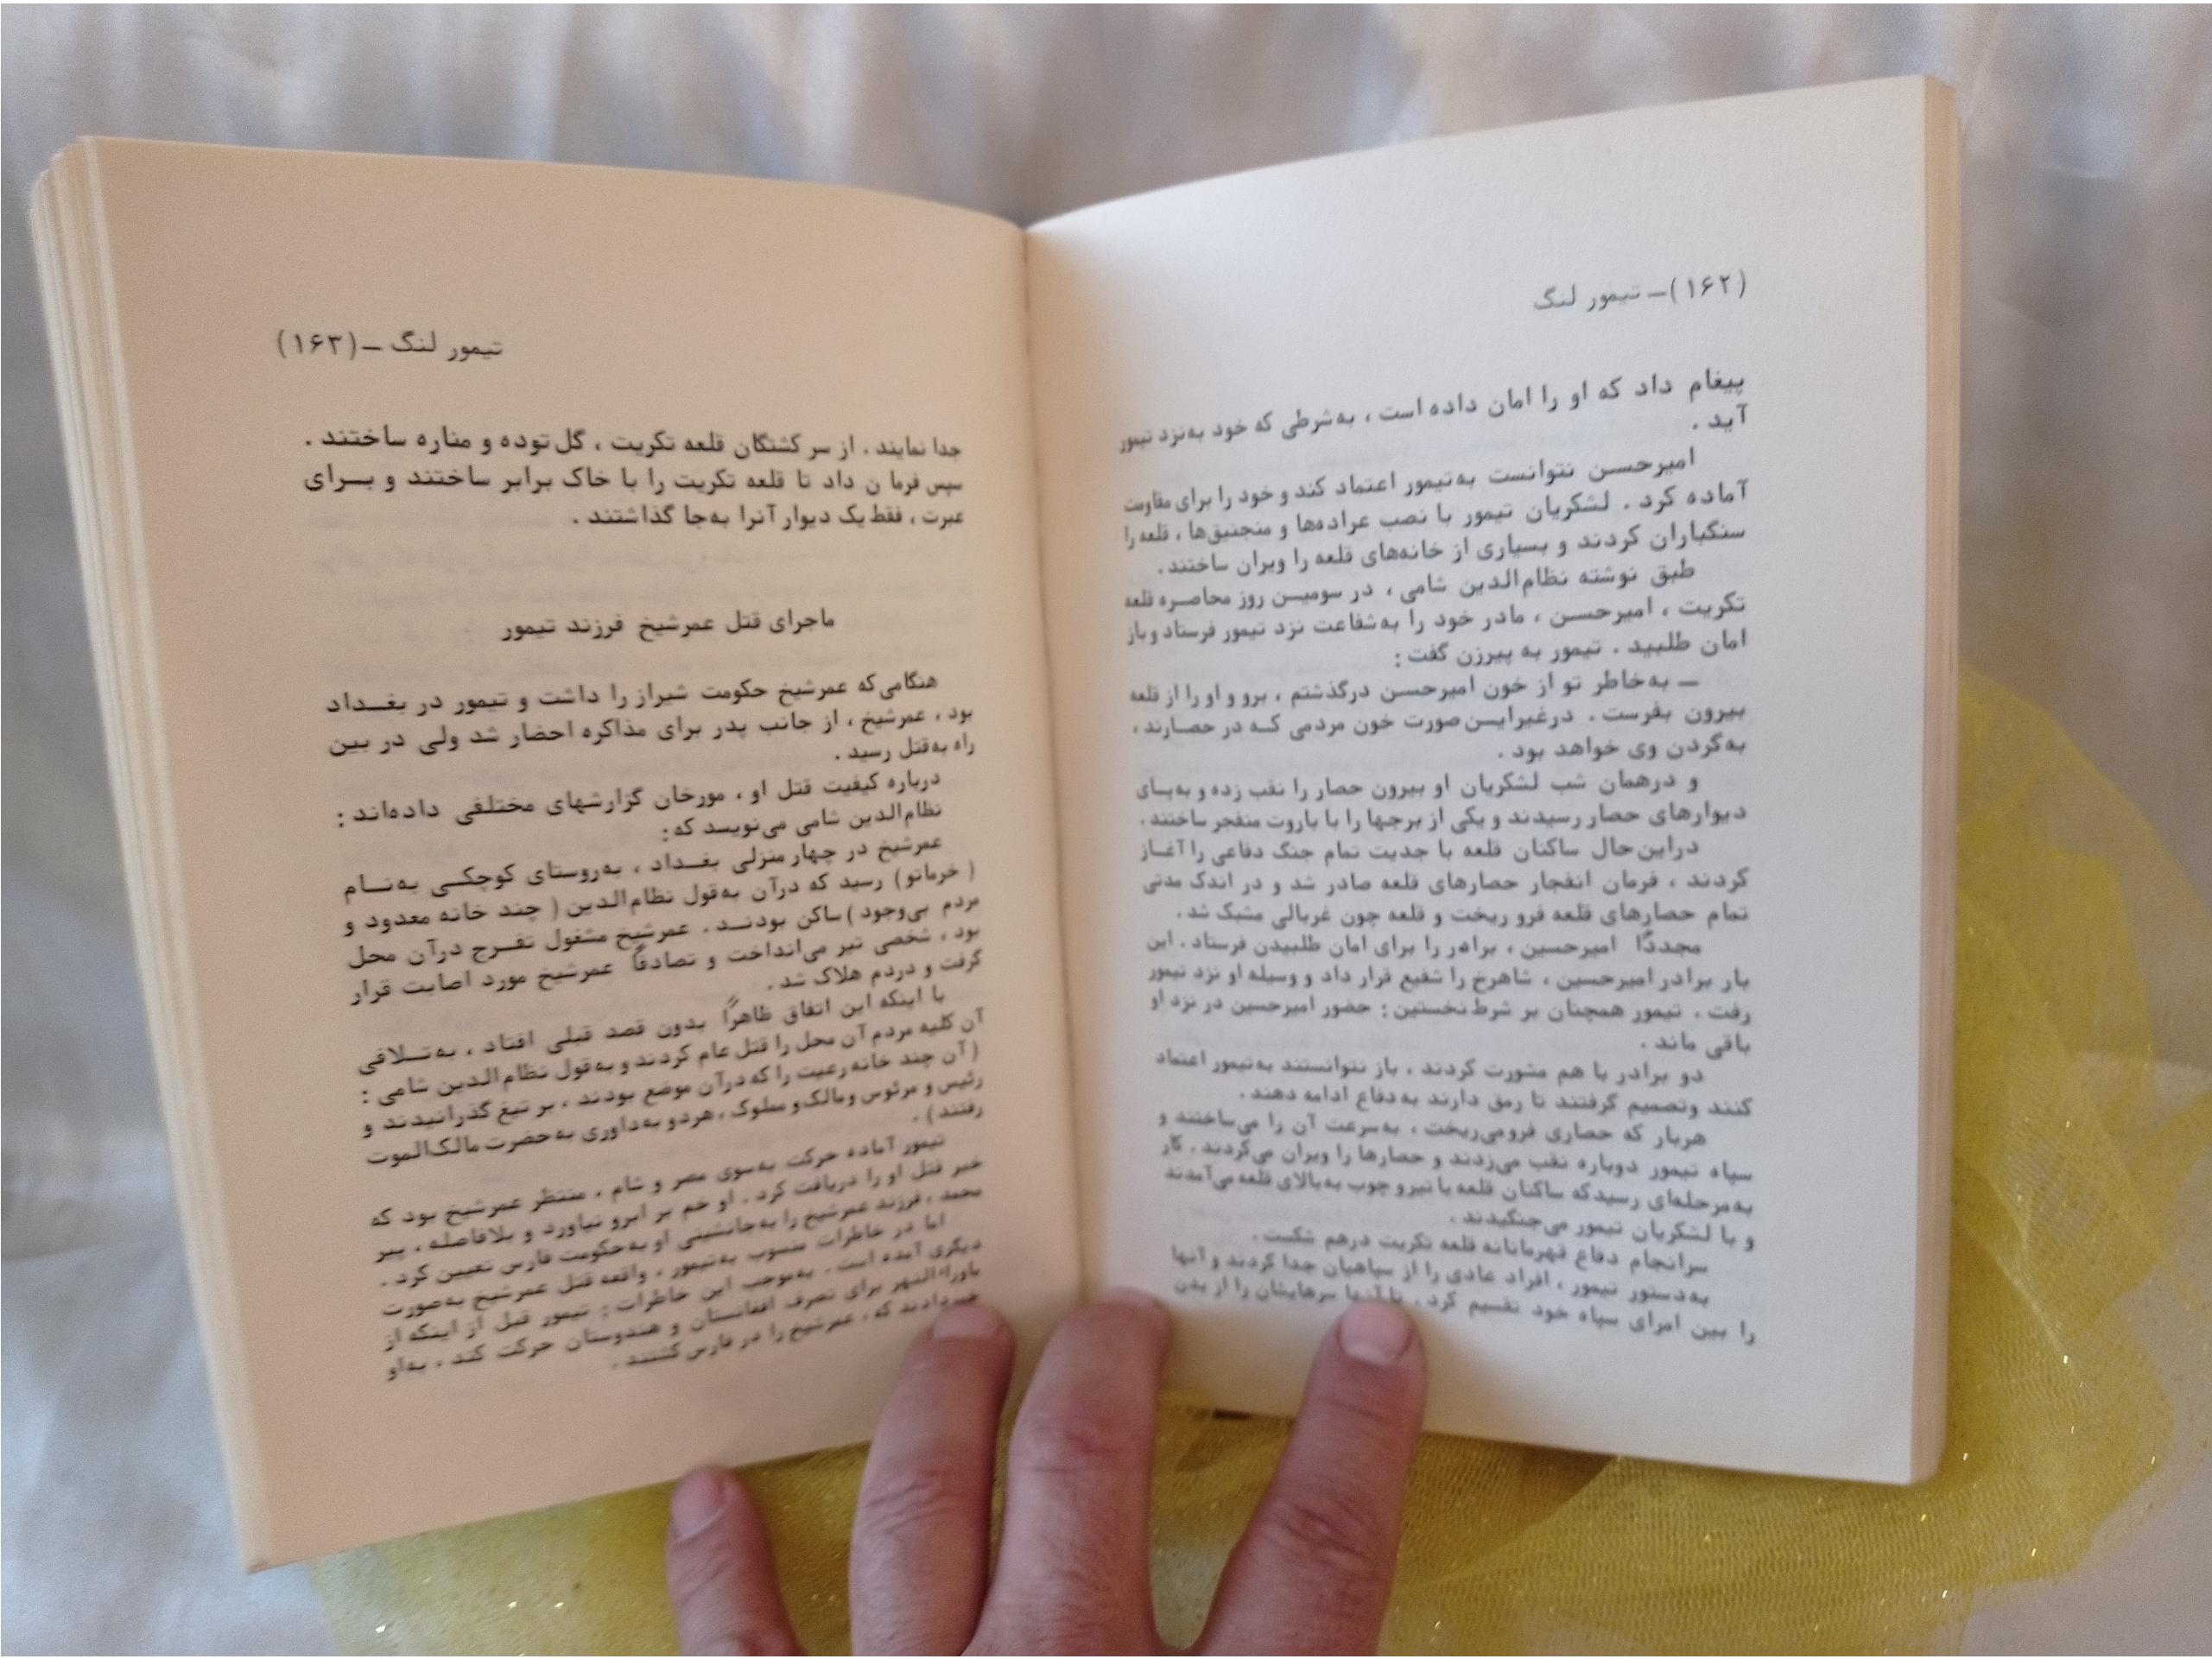 (۱۶۲)ــ تیمور لنگ
پیغام داد که او را امان داده است ، به‌شرطی که خود به‌نزد تیمور
آید .
امیرحسن نتوانست به‌تیمور اعتماد کند و خود را برای مقاومت
آماده کرد . لشکریان تیمور با نصب عراده‌ها و منجنیق‌ها ، قلعه را
سنگباران کردند و بسیاری از خانه‌های قلعه را ویران ساختند .
طبق نوشته نظام‌الدین شامی ، در سومین روز محاصره قلعه
تکریت ، امیرحسن ، مادر خود را به‌شفاعت نزد تیمور فرستاد و باز
امان طلبید . تیمور به پیرزن گفت :
ــ به‌خاطر تو از خون امیرحسن درگذشتم ، برو و او را از قلعه
بیرون بفرست . درغیراین‌صورت خون مردمی کــه در حصارند ،
به‌گردن وی خواهد بود .
و درهمان شب لشکریان او بیرون حصار را نقب زده و به‌پای
دیوارهای حصار رسیدند و یکی از برجها را با باروت منفجر ساختند .
دراین‌حال ساکنان قلعه با جدیت تمام جنگ دفاعی را آغاز
کردند ، فرمان انفجار حصارهای قلعه صادر شد و در اندک مدتی
تمام حصارهای قلعه فرو ریخت و قلعه چون غربالی مشبک شد .
مجدداً امیرحسین ، برادر را برای امان طلبیدن فرستاد . این
بار برادر امیرحسین ، شاهرخ را شفیع قرار داد و وسیله او نزد تیمور
رفت . تیمور همچنان بر شرط نخستین : حضور امیرحسین در نزد او
باقی ماند .
دو برادر با هم مشورت کردند ، باز نتوانستند به‌تیمور اعتماد
کنند وتصمیم گرفتند تا رمق دارند به‌دفاع ادامه دهند .
هربار که حصاری فرومی‌ریخت ، به‌سرعت آن را می‌ساختند و
سپاه تیمور دوباره نقب می‌زدند و حصارها را ویران می‌کردند . کار
به‌مرحله‌ای رسیدکه ساکنان قلعه با تیرو چوب به‌بالای قلعه می‌آمدند
و با لشکریان تیمور می‌جنگیدند .
سرانجام دفاع قهرمانانه قلعه تکریت درهم شکست .
به‌دستور تیمور ، افراد عادی را از سپاهیان جدا کردند و آنها
را بین امرای سپاه خود تقسیم کرد . تا آنها سرهایشان را از بدن
تیمور لنگ ــ(۱۶۳)
جدا نمایند . از سر کشتگان قلعه تکریت ، گل‌توده و مناره ساختند .
سپس فرما ن داد تا قلعه تکریت را با خاک برابر ساختند و بــرای
عبرت ، فقط یک دیوار آنرا به‌جا گذاشتند .
ماجرای قتل عمرشیخ فرزند تیمور
هنگامی‌که عمرشیخ حکومت شیراز را داشت و تیمور در بغــداد
بود ، عمرشیخ ، از جانب پدر برای مذاکره احضار شد ولی در بین
راه به‌قتل رسید .
درباره کیفیت قتل او ، مورخان گزارشهای مختلفی داده‌اند :
نظام‌الدین شامی می‌نویسد که :
عمرشیخ در چهار منزلی بغــداد ، به‌روستای کوچکــی به‌نــام
( خرماتو) رسید که درآن به‌قول نظام‌الدین ( چند خانه معدود و
مردم بی‌وجود ) ساکن بودنــد . عمرشیخ مشغول تفــرج درآن محل
بود ، شخصی تیر می‌انداخت و تصادفاً عمرشیخ مورد اصابت قرار
گرفت و دردم هلاک شد .
با اینکه این اتفاق ظاهراً بدون قصد قبلی افتاد ، به‌تــلافی
آن کلیه مردم آن محل را قتل عام کردند و به‌قول نظام‌الدین شامی :
(آن چند خانه رعیت را که درآن موضع بودند ، بر تیغ گذرانیدند و
رئیس و مرئوس و مالک و مملوک ، هردو به‌داوری به‌حضرت مالک‌الموت
رفتند) .
تیمور آماده حرکت به‌سوی مصر و شام ، منتظر عمرشیخ بود که
خبر قتل او را دریافت کرد . او خم بر ابرو نیاورد و بلافاصله ، پیر
محمد ، فرزند عمرشیخ را به‌جانشینی او به‌حکومت فارس تعیین کرد .
اما در خاطرات منسوب به‌تیمور ، واقعه قتل عمرشیخ به‌صورت
دیگری آمده است . به‌موجب این خاطرات : تیمور قبل از اینکه از
ماوراءالنهر برای تصرف افغانستان و هندوستان حرکت کند ، به‌او
خبر دادند که ، عمرشیخ را در فارس کشتند .